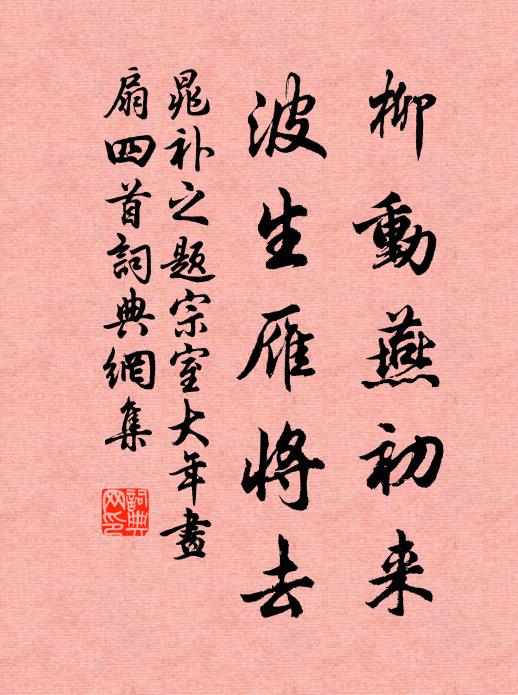 柳動燕初来
波生雁将去
晁补之题宗室大年畫
扇四首詞典網集
詞典
网印